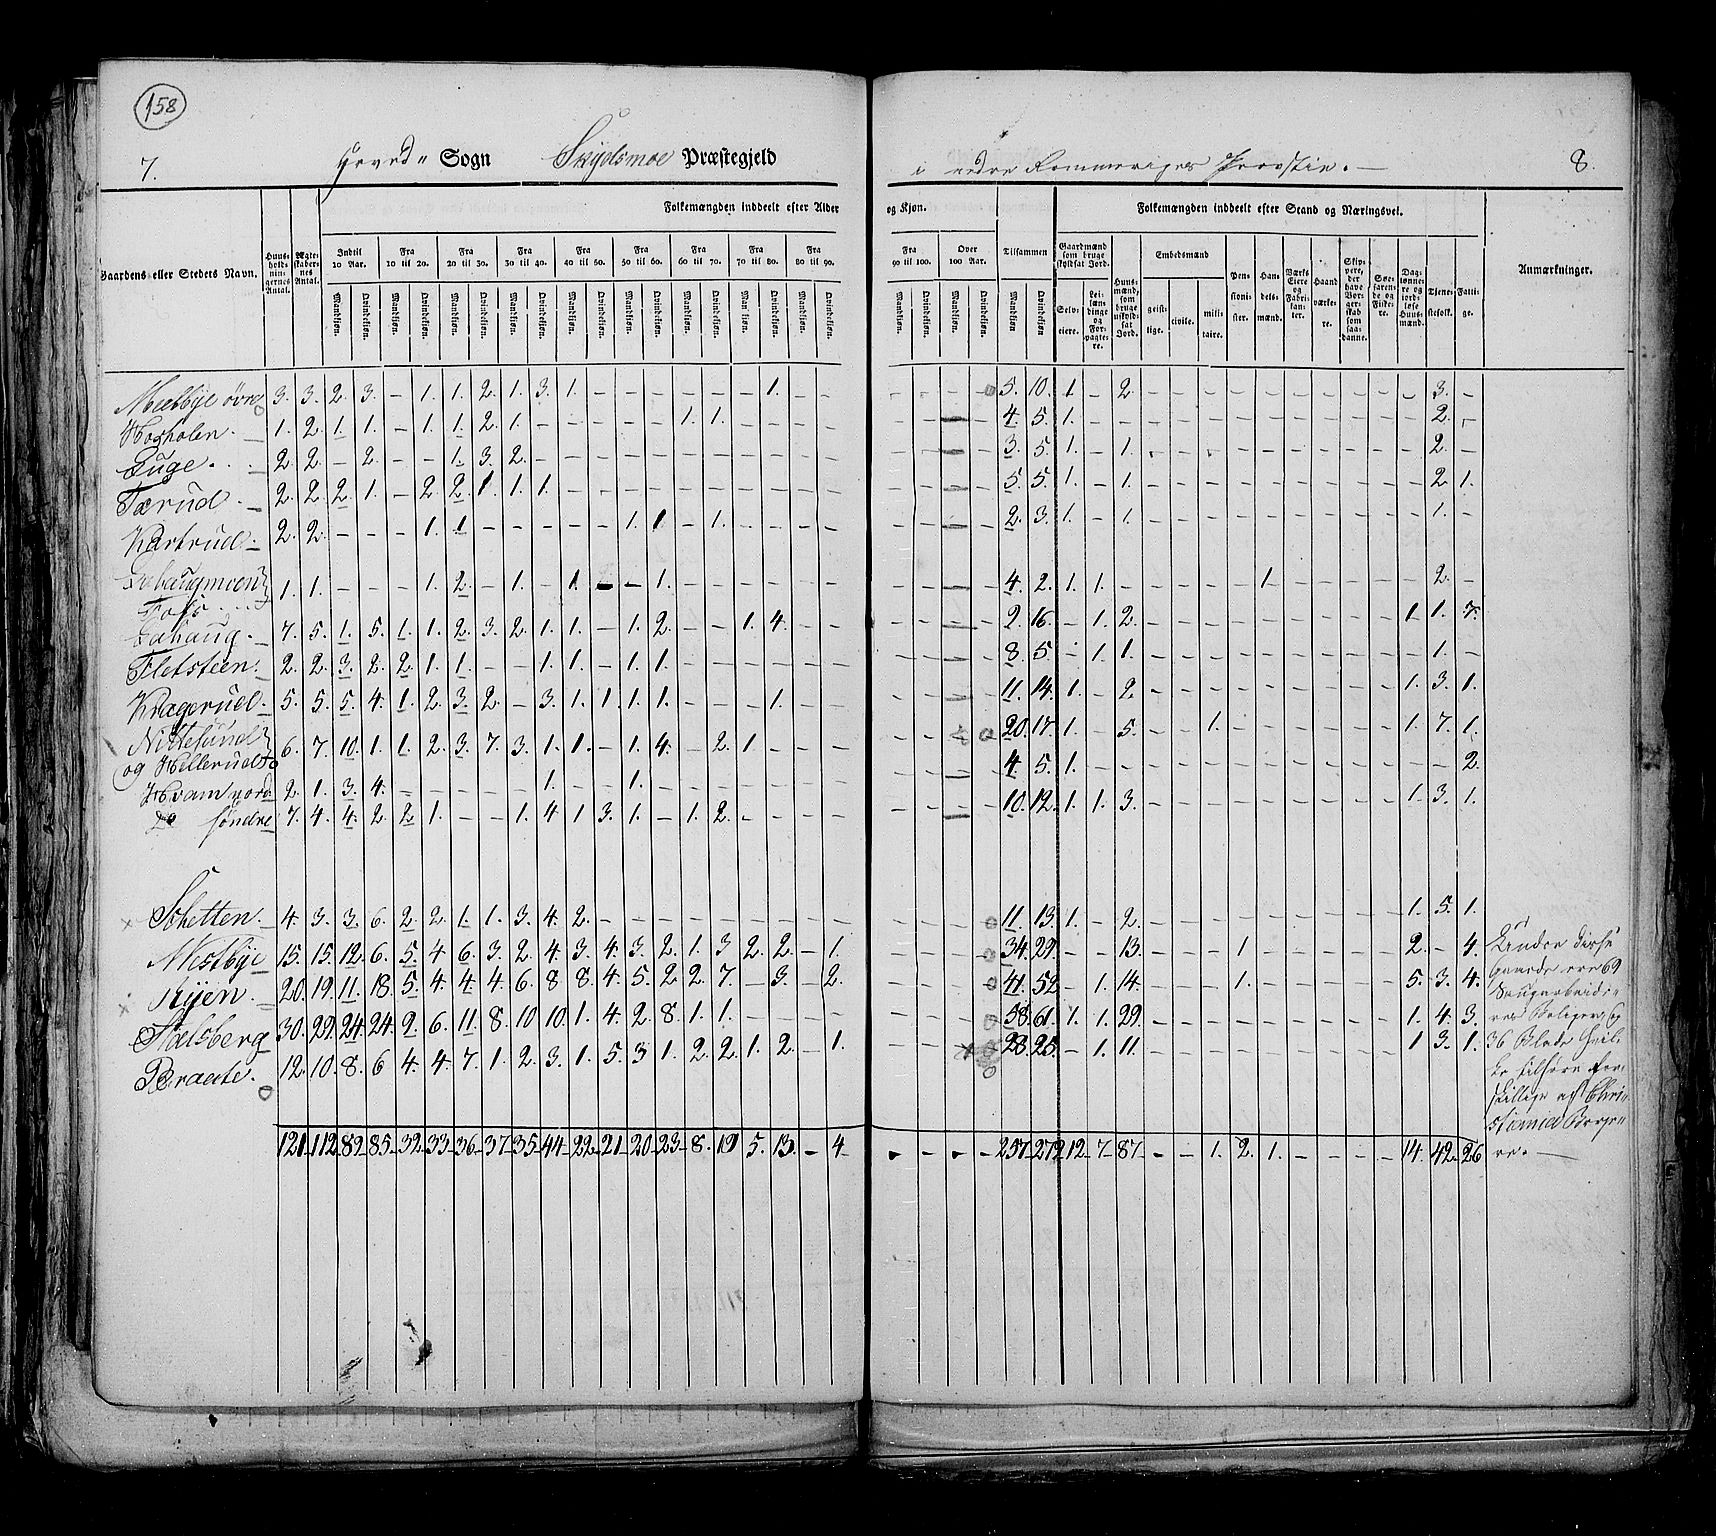 158
7. Hoved- Sogn Skydsmoe Præstegjeld
i nedre Rommeriges Provstie. 8.
Gaardens eller Stedets Navn. Huusholdningernes Antal. Ægteskabernes Antal. Folkemængden inddeelt efter Alder og Kjøn. Tilsammen Folkemængden inddeelt efter Stand og Næringsvei. Anmærkninger.
Indtil 10 Aar. Fra 10 til 20. Fra 20 til 30. Fra 30 til 40. Fra 40 til 50. Fra 50 til 60. Fra 60 til 70. Fra 70 til 80. Fra 80 til 90. Fra 90 til 100. Over 100 Aar.
Mandkjøn. Qvindekjøn.
Gaardmænd som bruge skyldsat Jord. Selveiere. Leilændinge og Forpagtere. Huusmænd, som bruge uskyldsat Jord. Embedsmænd geistlige. civile. militaire. Pensionister. Handelsmænd. Værks Eiere og Fabrikanter. Haandværkere. Skippere, der have Borgerskab som saadanne. Søefarende og Fiskere. Daglønnere og jordløse Huusmænd. Tjenestefolk. Fattige.
Melbye øvre 3. 3. 2. 3. – 1. 1. 2. 1. 3. 1. – – – – – – 1. – – – – – – 5. 10. 1 – 2. – – – – – – – – – – 3. –
Hoxholen. 1. 2. 1. 1. – 1. 1. 2. 1. – – – – – 1. 1. – – – – – – – – 4. 5. 1. – – – – – – – – – – – – 2. –
Ruge. 2. 2. – 2. – – 1. 3. 2. – – – – – – – – – – – – – – – 3. 5. 1. – 1. – – – – – – – – – – 2. –
Tærud. 2. 2. 2. 1. – 2. 2. 1. 1. 1. – – – – – – – – – – – – – – 5. 5. 1. – 1. – – – – – – – – – – 2 1.
Kartrud. 2. 2. – – – 1. 1. – – – – – 1. 1. – 1. – – – – – – – – 2. 3. 1. – 1. – – – – – – – – – – 1. –
Fos. 1. 1. – – – 1. 2. – 1. – 1. – – 1. – – – – – – – – – – 4. 2. 1. 1. – – – – – 1 – – – – – 2. –
Lahaug. 7. 5. 1. 5. 1. 1. 2. 3. 2. 1. 1. – 1. 2. – – 1. 4. – – – – – – 9. 16. – 1. 2. – – – – – – – – – 1 1. 7.
Fletsteen. 2. 2. 3. 2. 2. 1. 1. – – 1. 1. – 1. 1. – – – – – – – – – – 8. 5. – 1. 1. – – – – – – – – – – 1. –
Kragerud. 5. 5. 5. 4. 1. 2. 3. 2. – 3. 1. 1 1. 1. – – – 1. – – – – – – 11. 14. 1. – 2. – – – – – – – – – 1. 3. 1.
Nittesund
og Hellerudsto 6. 7. 10. 1. 1. 2. 3. 7. 3. 1. 1. – 1. 4. – 2. 1 – – – – – – – 20. 17. 1. – 5. – – 1. – – – – – – 1. 7. 1.
Hvam nord. 2. 1. 3. 4. – – – – – 1. – – 1. – – – – – – – – – – – 4. 5. 1. – – – – – – – – – – – – – 2.
Do søndre 7. 4. 4. 2. 2. 1. – – 1. 4. 1 3. 1. – 1. 2. – – – – – – – – 10. 12. 1. 1. 3. – – – – – – – – – 1. 3. 1.
x Schetten. 4. 3. 3. 6. 2. 2. 1. 1. 3. 4. 2. – – – – – – – – – – – – – 11. 13. 1. – 2. – – – – – – – – – 1. 5. 1.
Nestbye 15. 15. 12. 6. 5. 4 6. 3. 2. 4. 3. 4. 3. 2. 1. 3 2. 2. – 1. – – – – 34. 29. – – 13. – – – 1 – – – – – 2. – 4.
x Ryen. 20. 19. 11. 18. 5. 4. 4. 4. 6. 8 8. 4. 5. 2 2. 7. – 3. – 2. – – – – 41. 52 – 1. 14. – – – 1. – – – – – 5. 3. 4.
Stalsberg 30. 29. 24. 24. 2. 6. 11. 8. 10 10. 1. 4. 2. 8. 1. 1. – – – – – – – – 58. 61. 1. 1. 29. – – – – – – – – – 1. 4. 3.
Braate. 12. 10. 8. 6 4. 4. 7. 1. 2. 3. 1. 5. 3 1. 2. 2. 1. 2. – 1. – – – – 28. 25. – 1. 11. – – – – – – – – – 1 3. 1.
Under disse
Gaarde ere 69
Saugarbeide-
res Boliger og
36 Blade hvil-
ke tilhøre for-
skillige af Chri-
stiania Borge-
re.
121. 112 89. 85. 32. 33. 36. 37. 35. 44. 22. 21. 20. 23. 8. 19 5. 13. – 4. – – – – 257. 279. 12. 7. 87. – – 1. 2. 1. – – – – 14. 42. 26